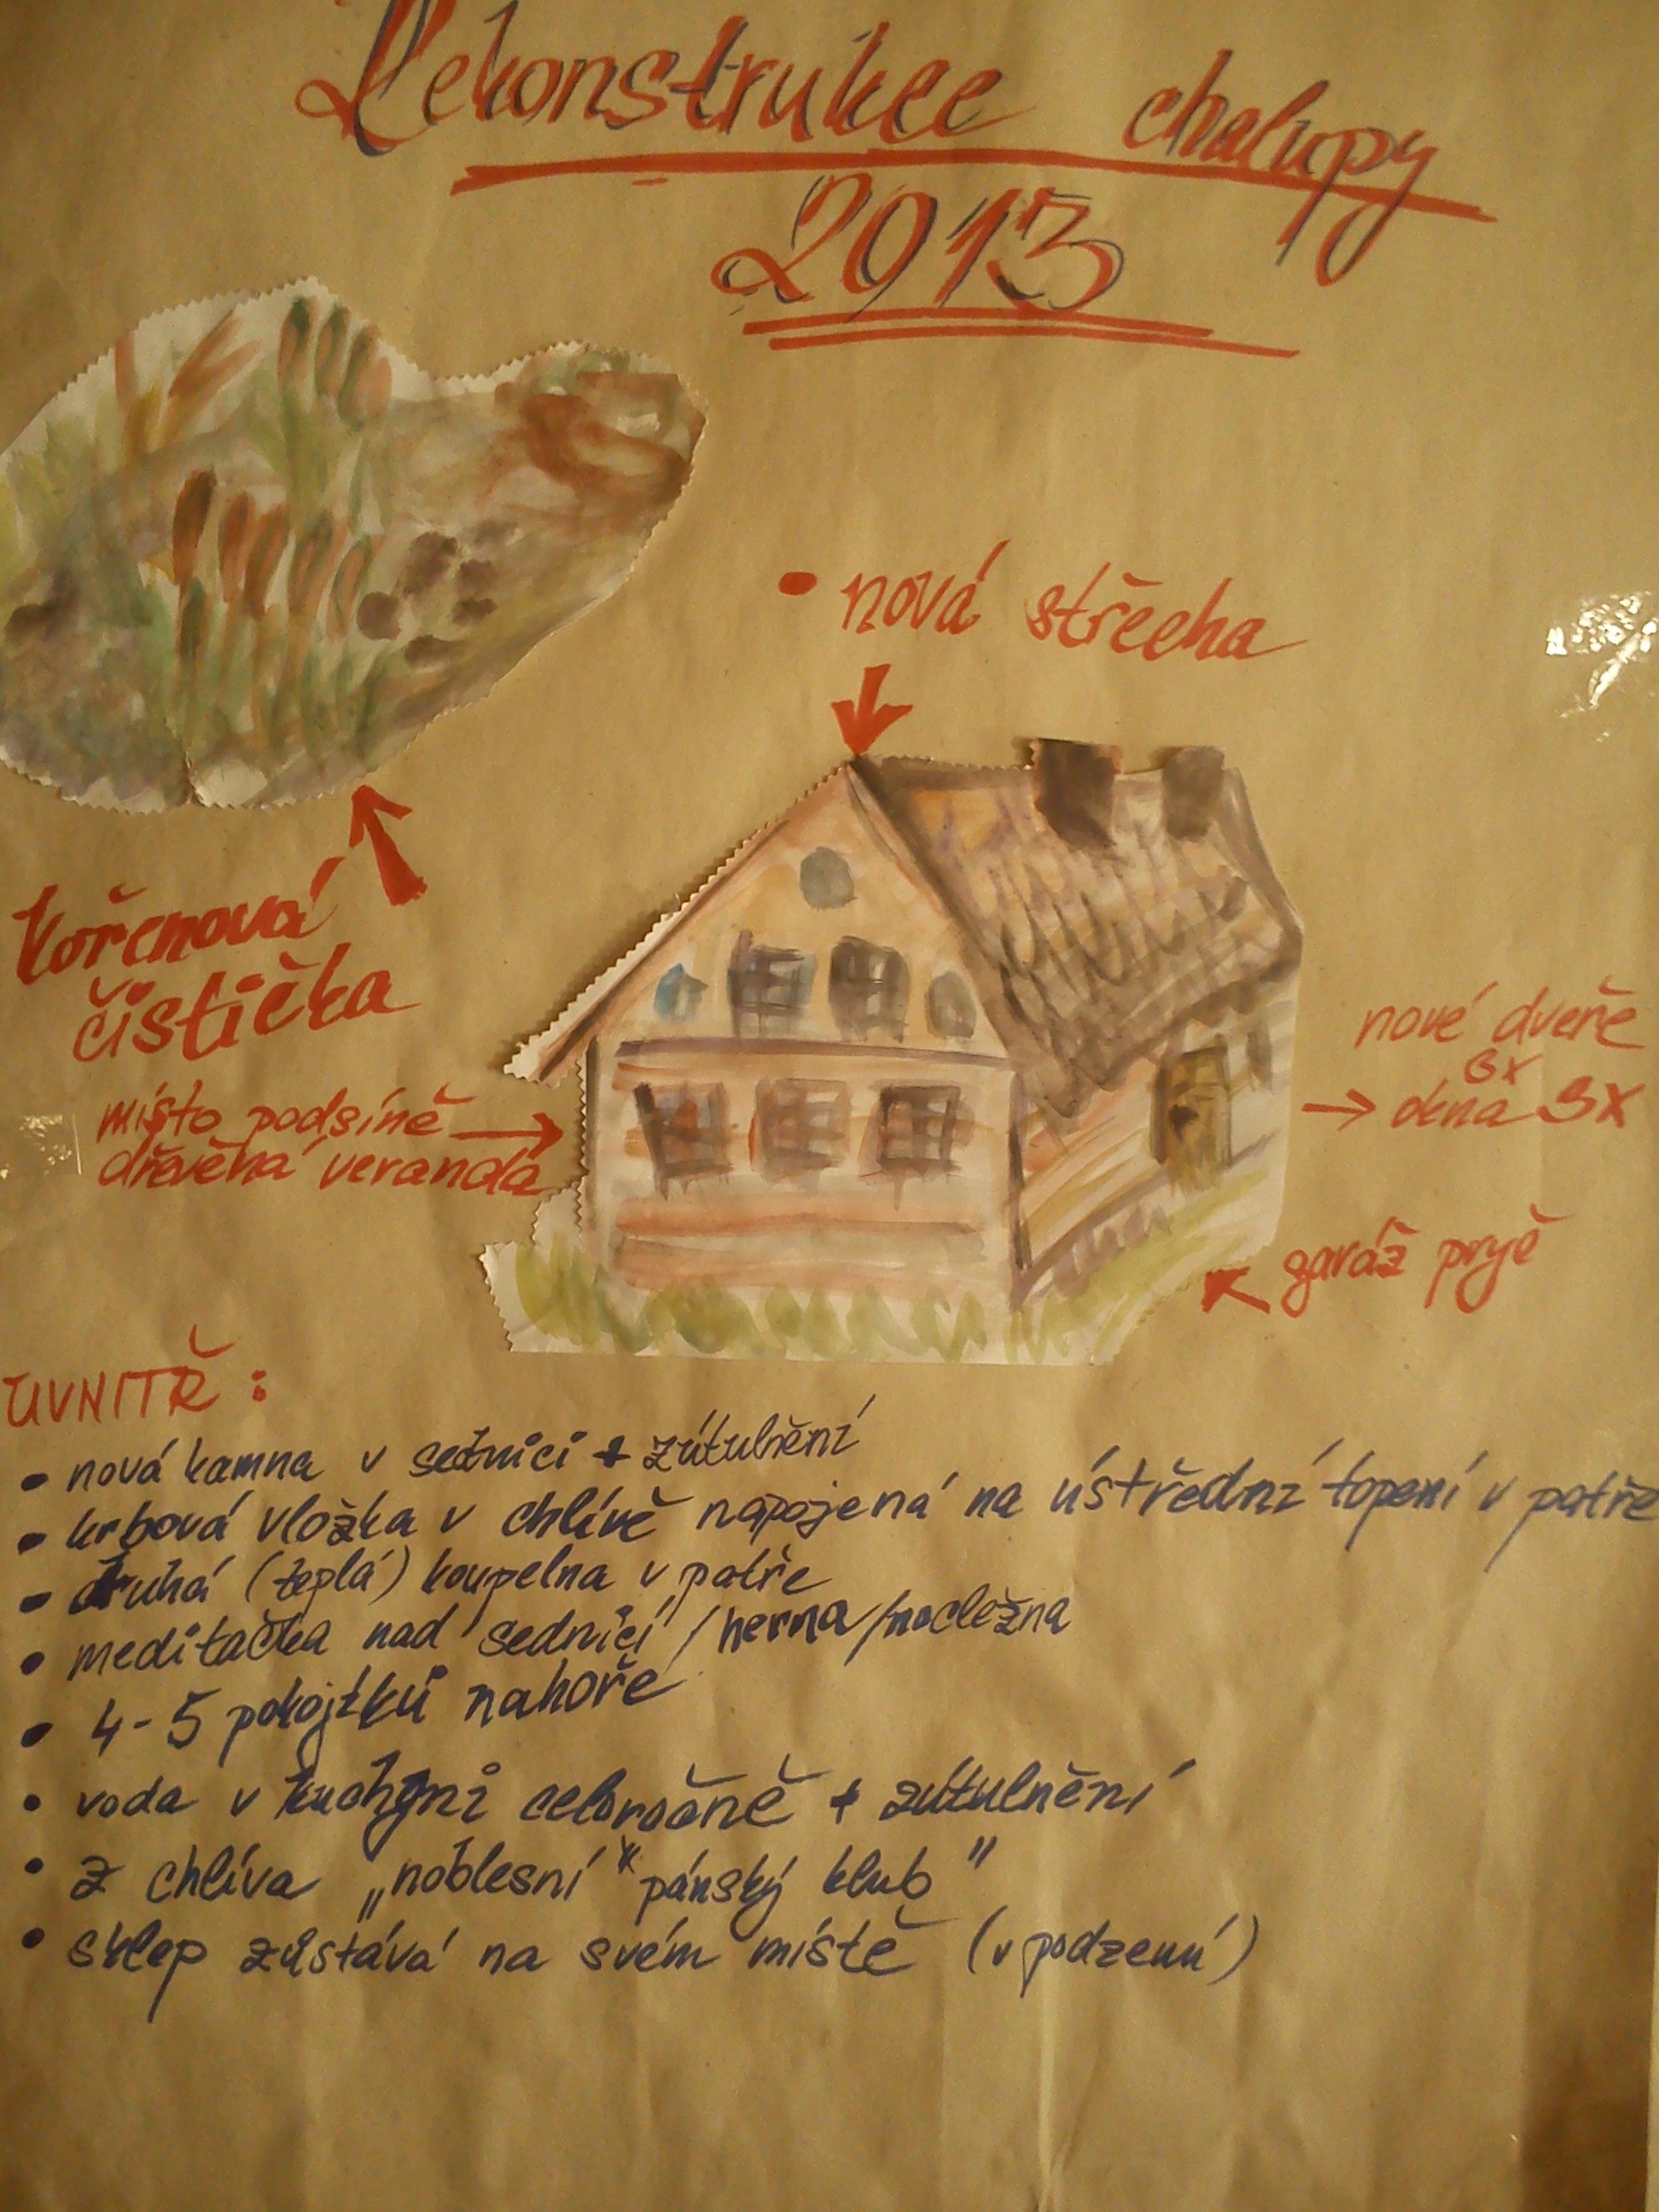 Rekonstrukce chalupy
2013
• nová střecha
kořenová
čistička
místo podsíně
dřevěná veranda
nové dveře
3x
→ okna 3x
garáž pryč
UVNITŘ:
• nová kamna v sednici + zútulnění
• krbová vložka v chlívě napojená na ústřední topení v patře
• druhá (teplá) koupelna v patře
• meditačka nad sednicí / herna / nocležna
• 4-5 pokojíků nahoře
• voda v kuchyni celoročně + zútulnění
• z chlíva „noblesní" pánský klub"
• sklep zůstává na svém místě (v podzemí)